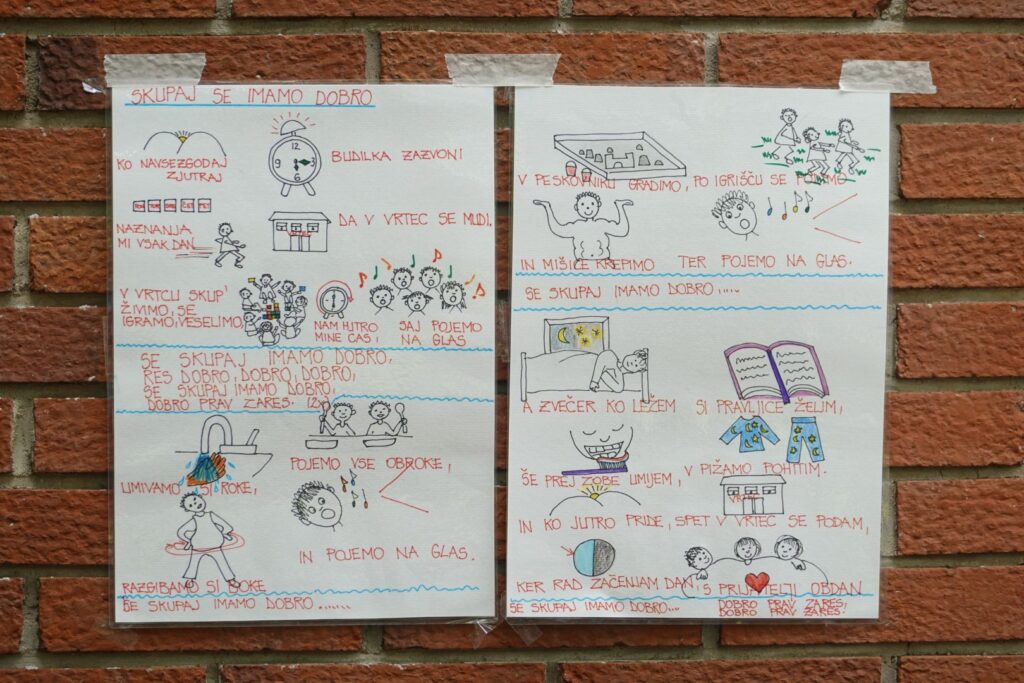 SKUPAJ SE IMAMO DOBRO
KO NAVSEZGODAJ
ZJUTRAJ
BUDILKA ZAZVONI
NAZNANJA
MI VSAK DAN
DA V VRTEC SE MUDI.
V VRTCU SKUP'
ŽIVIMO, SE
IGRAMO, VESELIMO,
NAM HITRO
MINE ČAS,
SAJ POJEMO
NA GLAS
SE SKUPAJ IMAMO DOBRO,
RES DOBRO, DOBRO, DOBRO,
SE SKUPAJ IMAMO DOBRO,
DOBRO PRAV ZARES. 2X
UMIVAMO SI ROKE,
POJEMO VSE OBROKE,
RAZGIBAMO SI BOKE
IN POJEMO NA GLAS.
SE SKUPAJ IMAMO DOBRO.......
V PESKOVNIKU GRADIMO, PO IGRIŠČU SE PODIMO
IN MIŠICE KREPIMO TER POJEMO NA GLAS.
SE SKUPAJ IMAMO DOBRO.....
A ZVEČER KO LEŽEM SI PRAVLJICE ŽELIM,
ŠE PREJ ZOBE UMIJEM, V PIŽAMO POHITIM.
VRTEC
IN KO JUTRO PRIDE, SPET V VRTEC SE PODAM,
KER RAD ZAČENJAM DAN, S PRIJATELJI OBDAN
SE SKUPAJ IMAMO DOBRO...
DOBRO PRAV ZARES,
DOBRO PRAV ZARES.